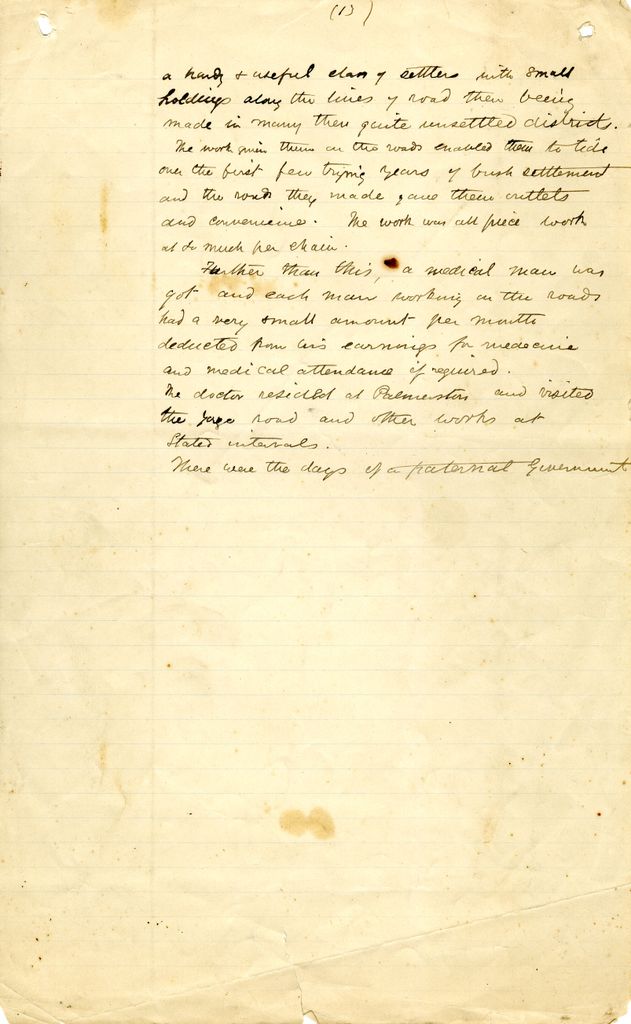 (13)
a handy & useful class of settlers with small
holdings along the lines of road then being
made in many then quite unsettled districts.
The work given them on the roads enabled them to tide
over the first few trying years of bush settlement
and the roads they made gave them outlets
and convenience. The work was all piece work
at so much per chain.
Further than this, a medical man was
got and each man working on the roads
had a very small amount per month
deducted from his earnings for medecine
and medical attendance if required.
The doctor resided at Palmerston and visited
the road and other works at
Stated intervals.
These were the days of a paternal Government